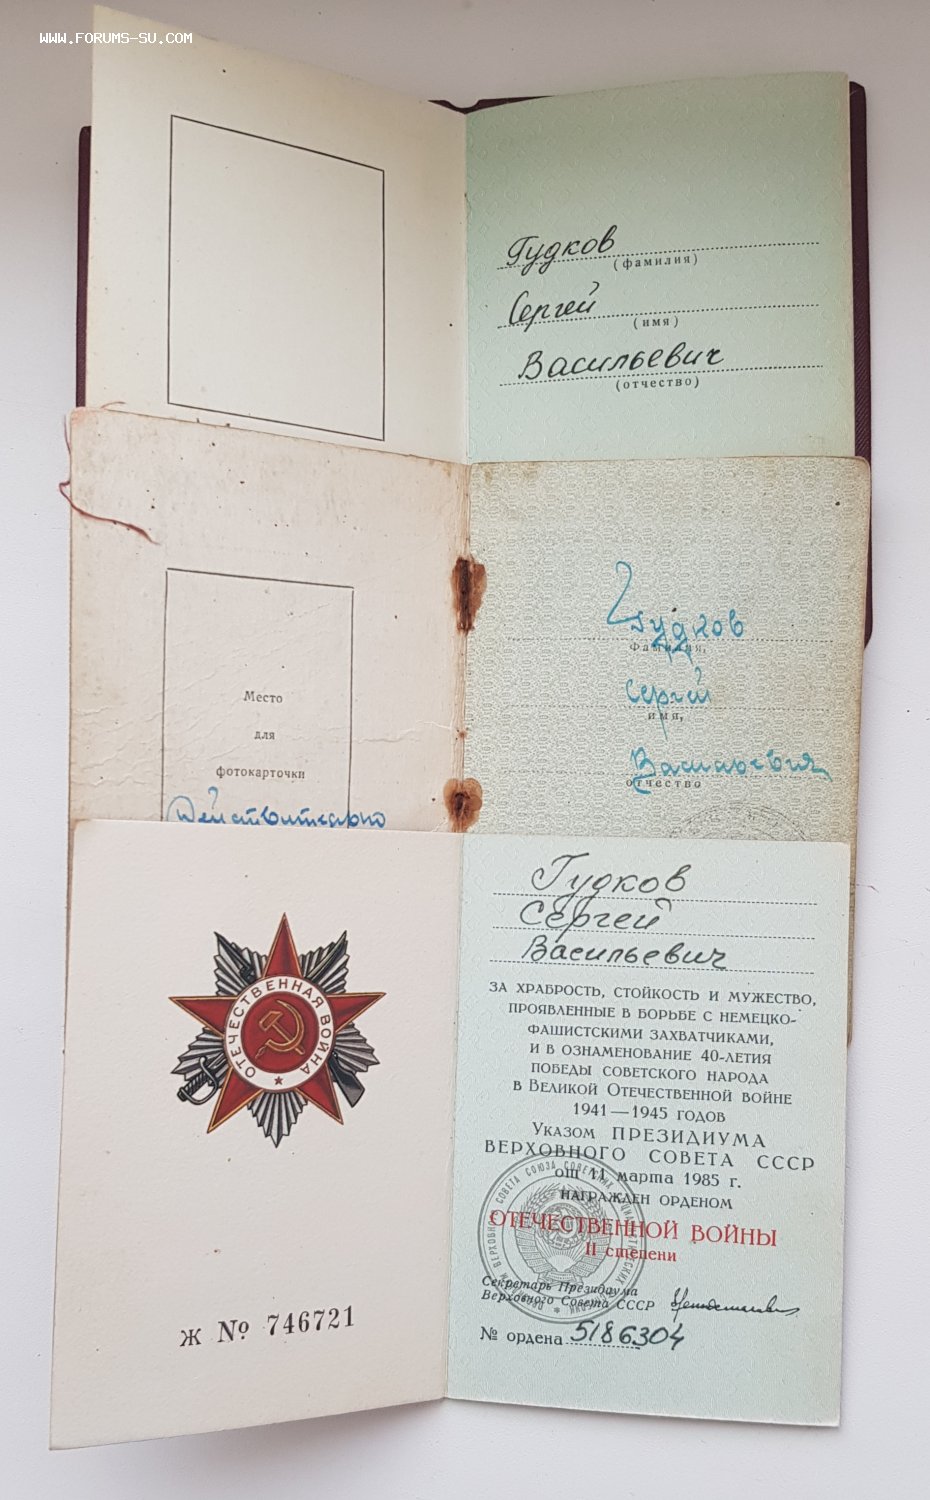 WWW.FORUMS-SU.COM
Гудков
(фамилия)
Сергей
(имя)
Васильевич
(отчество)
Место
для
фотокарточки
Действительно
Гудков
фамилия,
Сергей
имя,
Васильевич
отчество
ОТЕЧЕСТВЕННАЯ ВОЙНА
Ж № 746721
Гудков
Сергей
Васильевич
ЗА ХРАБРОСТЬ, СТОЙКОСТЬ И МУЖЕСТВО,
ПРОЯВЛЕННЫЕ В БОРЬБЕ С НЕМЕЦКО-
ФАШИСТСКИМИ ЗАХВАТЧИКАМИ,
И В ОЗНАМЕНОВАНИЕ 40-ЛЕТИЯ
ПОБЕДЫ СОВЕТСКОГО НАРОДА
В ВЕЛИКОЙ ОТЕЧЕСТВЕННОЙ ВОЙНЕ
1941—1945 ГОДОВ
УКАЗОМ ПРЕЗИДИУМА
ВЕРХОВНОГО СОВЕТА СССР
от 11 марта 1985 г.
НАГРАЖДЕН ОРДЕНОМ
ОТЕЧЕСТВЕННОЙ ВОЙНЫ
II степени
Секретарь Президиума
Верховного Совета СССР
№ ордена 5186304